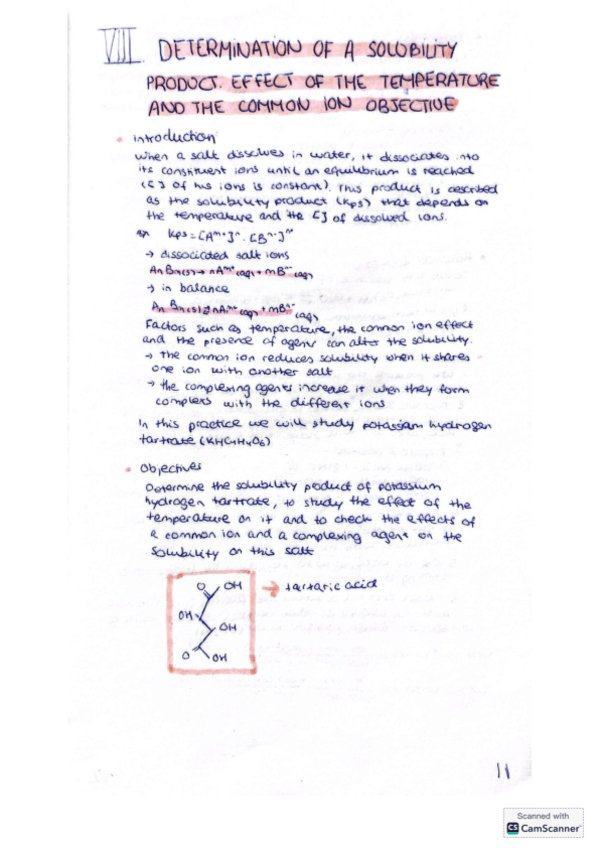 VIII. DETERMINATION OF A SOLUBILITY
PRODUCT. EFFECT OF THE TEMPERATURE
AND THE COMMON ION OBJECTIVE
• Introduction
When a salt dissolves in water, it dissociates into
its constituent ions until an equilibrium is reached
([] of his ions is constant). This product is described
as the solubility product (Kps) that depends on
the temperature and the [] of dissolved ions.
Kps = [Aᵐ⁺]ⁿ · [Bⁿ⁻]ᵐ
→ dissociated salt ions
AnBm(s) → nAᵐ⁺(aq) + mBⁿ⁻(aq)
→ in balance
AnBm(s) ⇌ nAᵐ⁺(aq) + mBⁿ⁻(aq)
Factors such as temperature, the common ion effect
and the presence of agents can alter the solubility.
→ the common ion reduces solubility when it shares
one ion with another salt
→ the complexing agents increase it when they form
complexs with the different ions
In this practice we will study potassium hydrogen
tartrate (KHC4H4O6)
• Objectives
Determine the solubility product of potassium
hydrogen tartrate, to study the effect of the
temperature on it and to check the effects of
a common ion and a complexing agent on the
solubility on this salt
O OH → tartaric acid
OH
OH
O OH
11
Scanned with
CS CamScanner